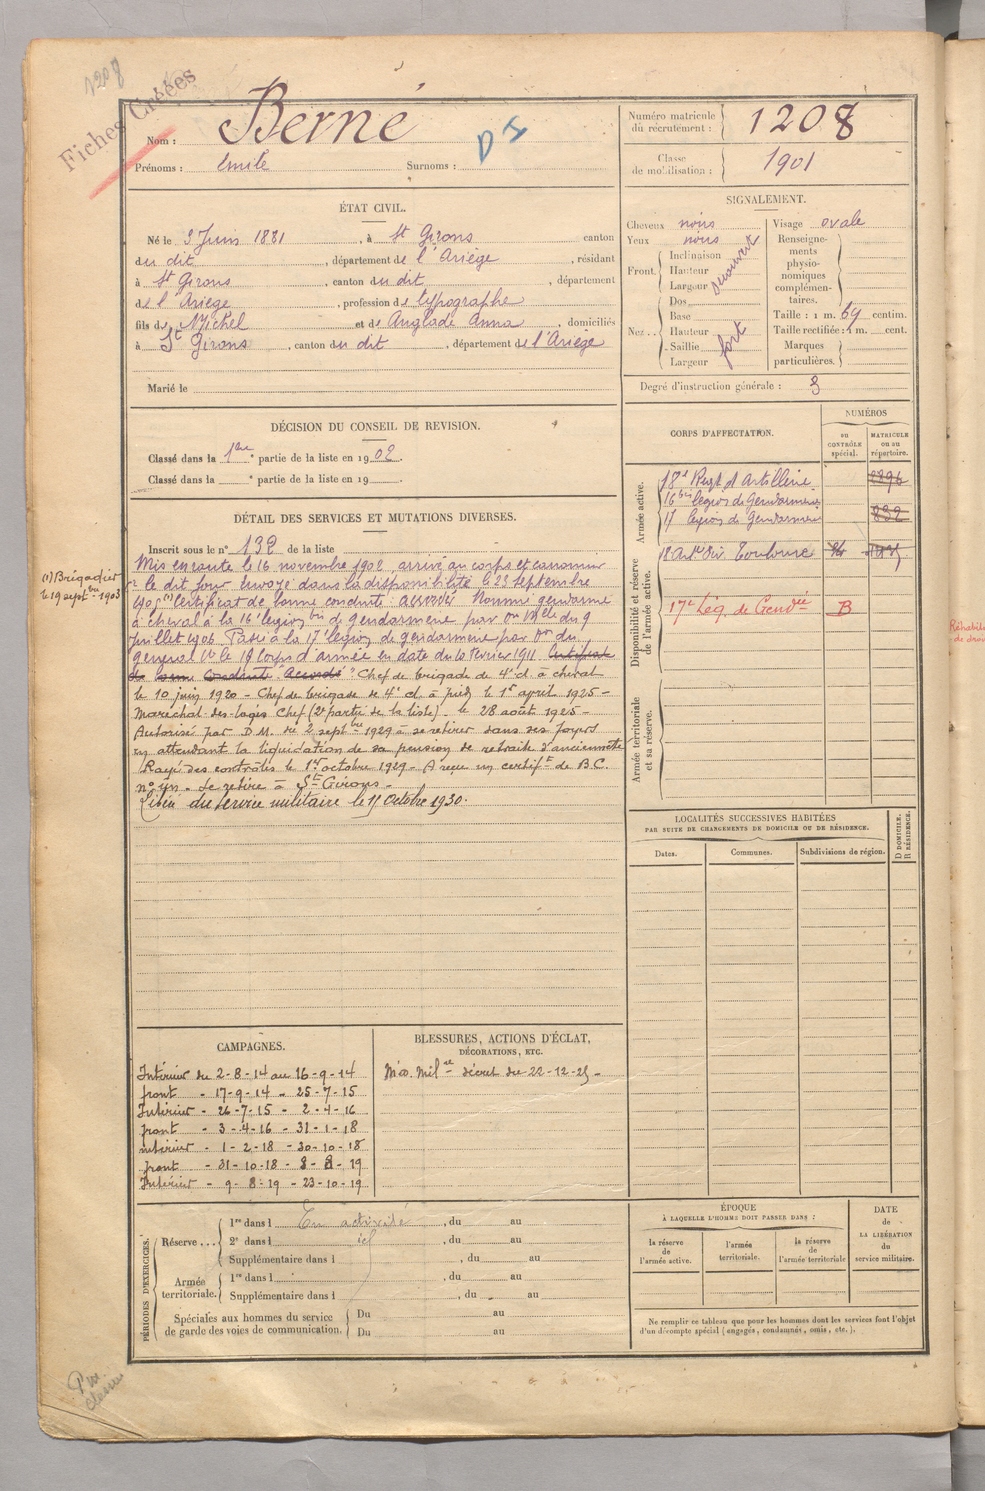 1208
Fiches Créées
Nom : Berné
D I
Prénoms : Emile Surnoms :
Numéro matricule du recrutement : 1208
Classe de mobilisation : 1901
ÉTAT CIVIL.
Né le 3 Juin 1881, à St Girons canton
du dit, département de l'Ariège, résidant
à St Girons, canton du dit, département
de l'Ariège, profession de typographe
fils de Michel et de Anglade Anna, domiciliés
à St Girons, canton du dit, département de l'Ariège
Marié le
SIGNALEMENT.
Cheveux noirs
Yeux noirs
Front. Inclinaison
Hauteur
Largeur
découvert
Nez.. Dos
Base
Hauteur
Saillie
Largeur
fort
Visage ovale
Renseignements physionomiques complémentaires.
Taille : 1 m. 69 centim.
Taille rectifiée : 1 m. cent.
Marques particulières.
Degré d'instruction générale : 3
DÉCISION DU CONSEIL DE REVISION.
Classé dans la 1re partie de la liste en 1902.
Classé dans la e partie de la liste en 19
DÉTAIL DES SERVICES ET MUTATIONS DIVERSES.
Inscrit sous le n° 132 de la liste
Mis en route le 16 novembre 1902, arrivé au corps et canonnier
le dit jour. Envoyé dans la disponibilité le 23 Septembre
1905 (1) Certificat de bonne conduite accordé. Nommé gendarme
à cheval à la 16e légion bis de Gendarmerie par on Mlle du 9
Juillet 1906. Passé à la 17e légion de gendarmerie par on du
général Ct le 18 Corps d'armée en date du 10 Février 1911. Certificat
de bonne Conduite "Accordé". Chef de brigade de 4e cl. à cheval
le 10 juin 1920 - Chef de brigade de 4e cl. à pied le 1er avril 1925 -
Maréchal-des-logis Chef (2e partie de la liste) le 28 août 1925 -
Autorisé par D.M. du 2 septbre 1929 à se retirer dans ses foyers
en attendant la liquidation de sa pension de retraite d'ancienneté
Rayé des contrôles le 1er octobre 1929 - A reçu un certift de B.C.
Se retire à St-Girons -
Libéré du service militaire le 15 Octobre 1930.
(1) Brigadier
le 19 septbre 1903
CORPS D'AFFECTATION.
NUMÉROS
au CONTRÔLE spécial.
MATRICULE ou au répertoire.
Armée active.
18e Regt d'Artillerie
16bis légion de Gendarmerie
17 légion de Gendarmerie 832
Disponibilité et réserve de l'armée active.
18 Toulouse
17e Lég. de Gendie B
Armée territoriale et sa réserve.
LOCALITÉS SUCCESSIVES HABITÉES
PAR SUITE DE CHANGEMENTS DE DOMICILE OU DE RÉSIDENCE.
Dates.
Communes.
Subdivisions de région.
D DOMICILE.
R RÉSIDENCE.
CAMPAGNES.
Intérieur du 2-8-14 au 16-9-14
front - 17-9-14 - 25-7-15
Intérieur - 26-7-15 - 2-4-16
front - 3-4-16 - 31-1-18
intérieur - 1-2-18 - 30-10-18
front - 31-10-18 - 8-8-19
Intérieur - 9-8-19 - 23-10-19
BLESSURES, ACTIONS D'ÉCLAT,
DÉCORATIONS, ETC.
Méd. Milre décret du 22-12-25 -
PÉRIODES D'EXERCICES.
Réserve ... 1re dans l En activité, du au
2e dans l id, du au
Supplémentaire dans l, du au
Armée territoriale. 1re dans l, du au
Supplémentaire dans l, du au
Spéciales aux hommes du service de garde des voies de communication. Du au
Du au
ÉPOQUE
À LAQUELLE L'HOMME DOIT PASSER DANS :
la réserve de l'armée active.
l'armée territoriale.
la réserve de l'armée territoriale
DATE
de
LA LIBÉRATION
du
service militaire.
Ne remplir ce tableau que pour les hommes dont les services font l'objet
d'un décompte spécial (engagés, condamnés, omis, etc.).